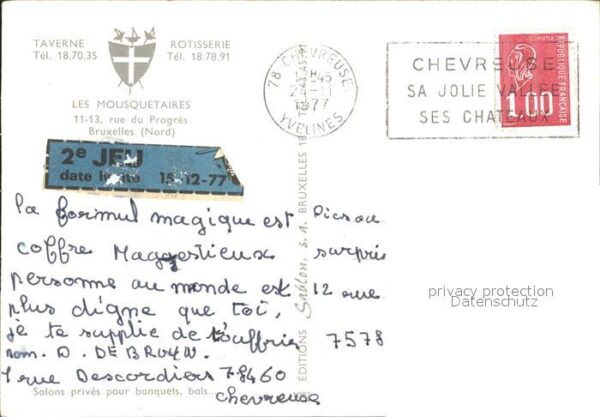 TAVERNE
Tél. 18.70.35
ROTISSERIE
Tél. 18.78.91
LES MOUSQUETAIRES
11-13, rue du Progrès
Bruxelles (Nord)
78 CHEVREUSE
24-11
1977
YVELINES
CHEVREUSE
SA JOLIE VALLEE
SES CHATEAUX
1.00
REPUBLIQUE FRANCAISE
2e JEU
date limite 15-12-77
la formul magique est
coffre Maggestieux
personne au monde est
plus digne que toi,
je te supplie de t'ouffrier
nom. D. DE BRUYN.
1 rue Descordiers 78460
chevreuse
surprie
12 rue
7578
privacy protection
Datenschutz
EDITIONS Sablon, s.a. BRUXELLES
Salons privés pour banquets, bals...